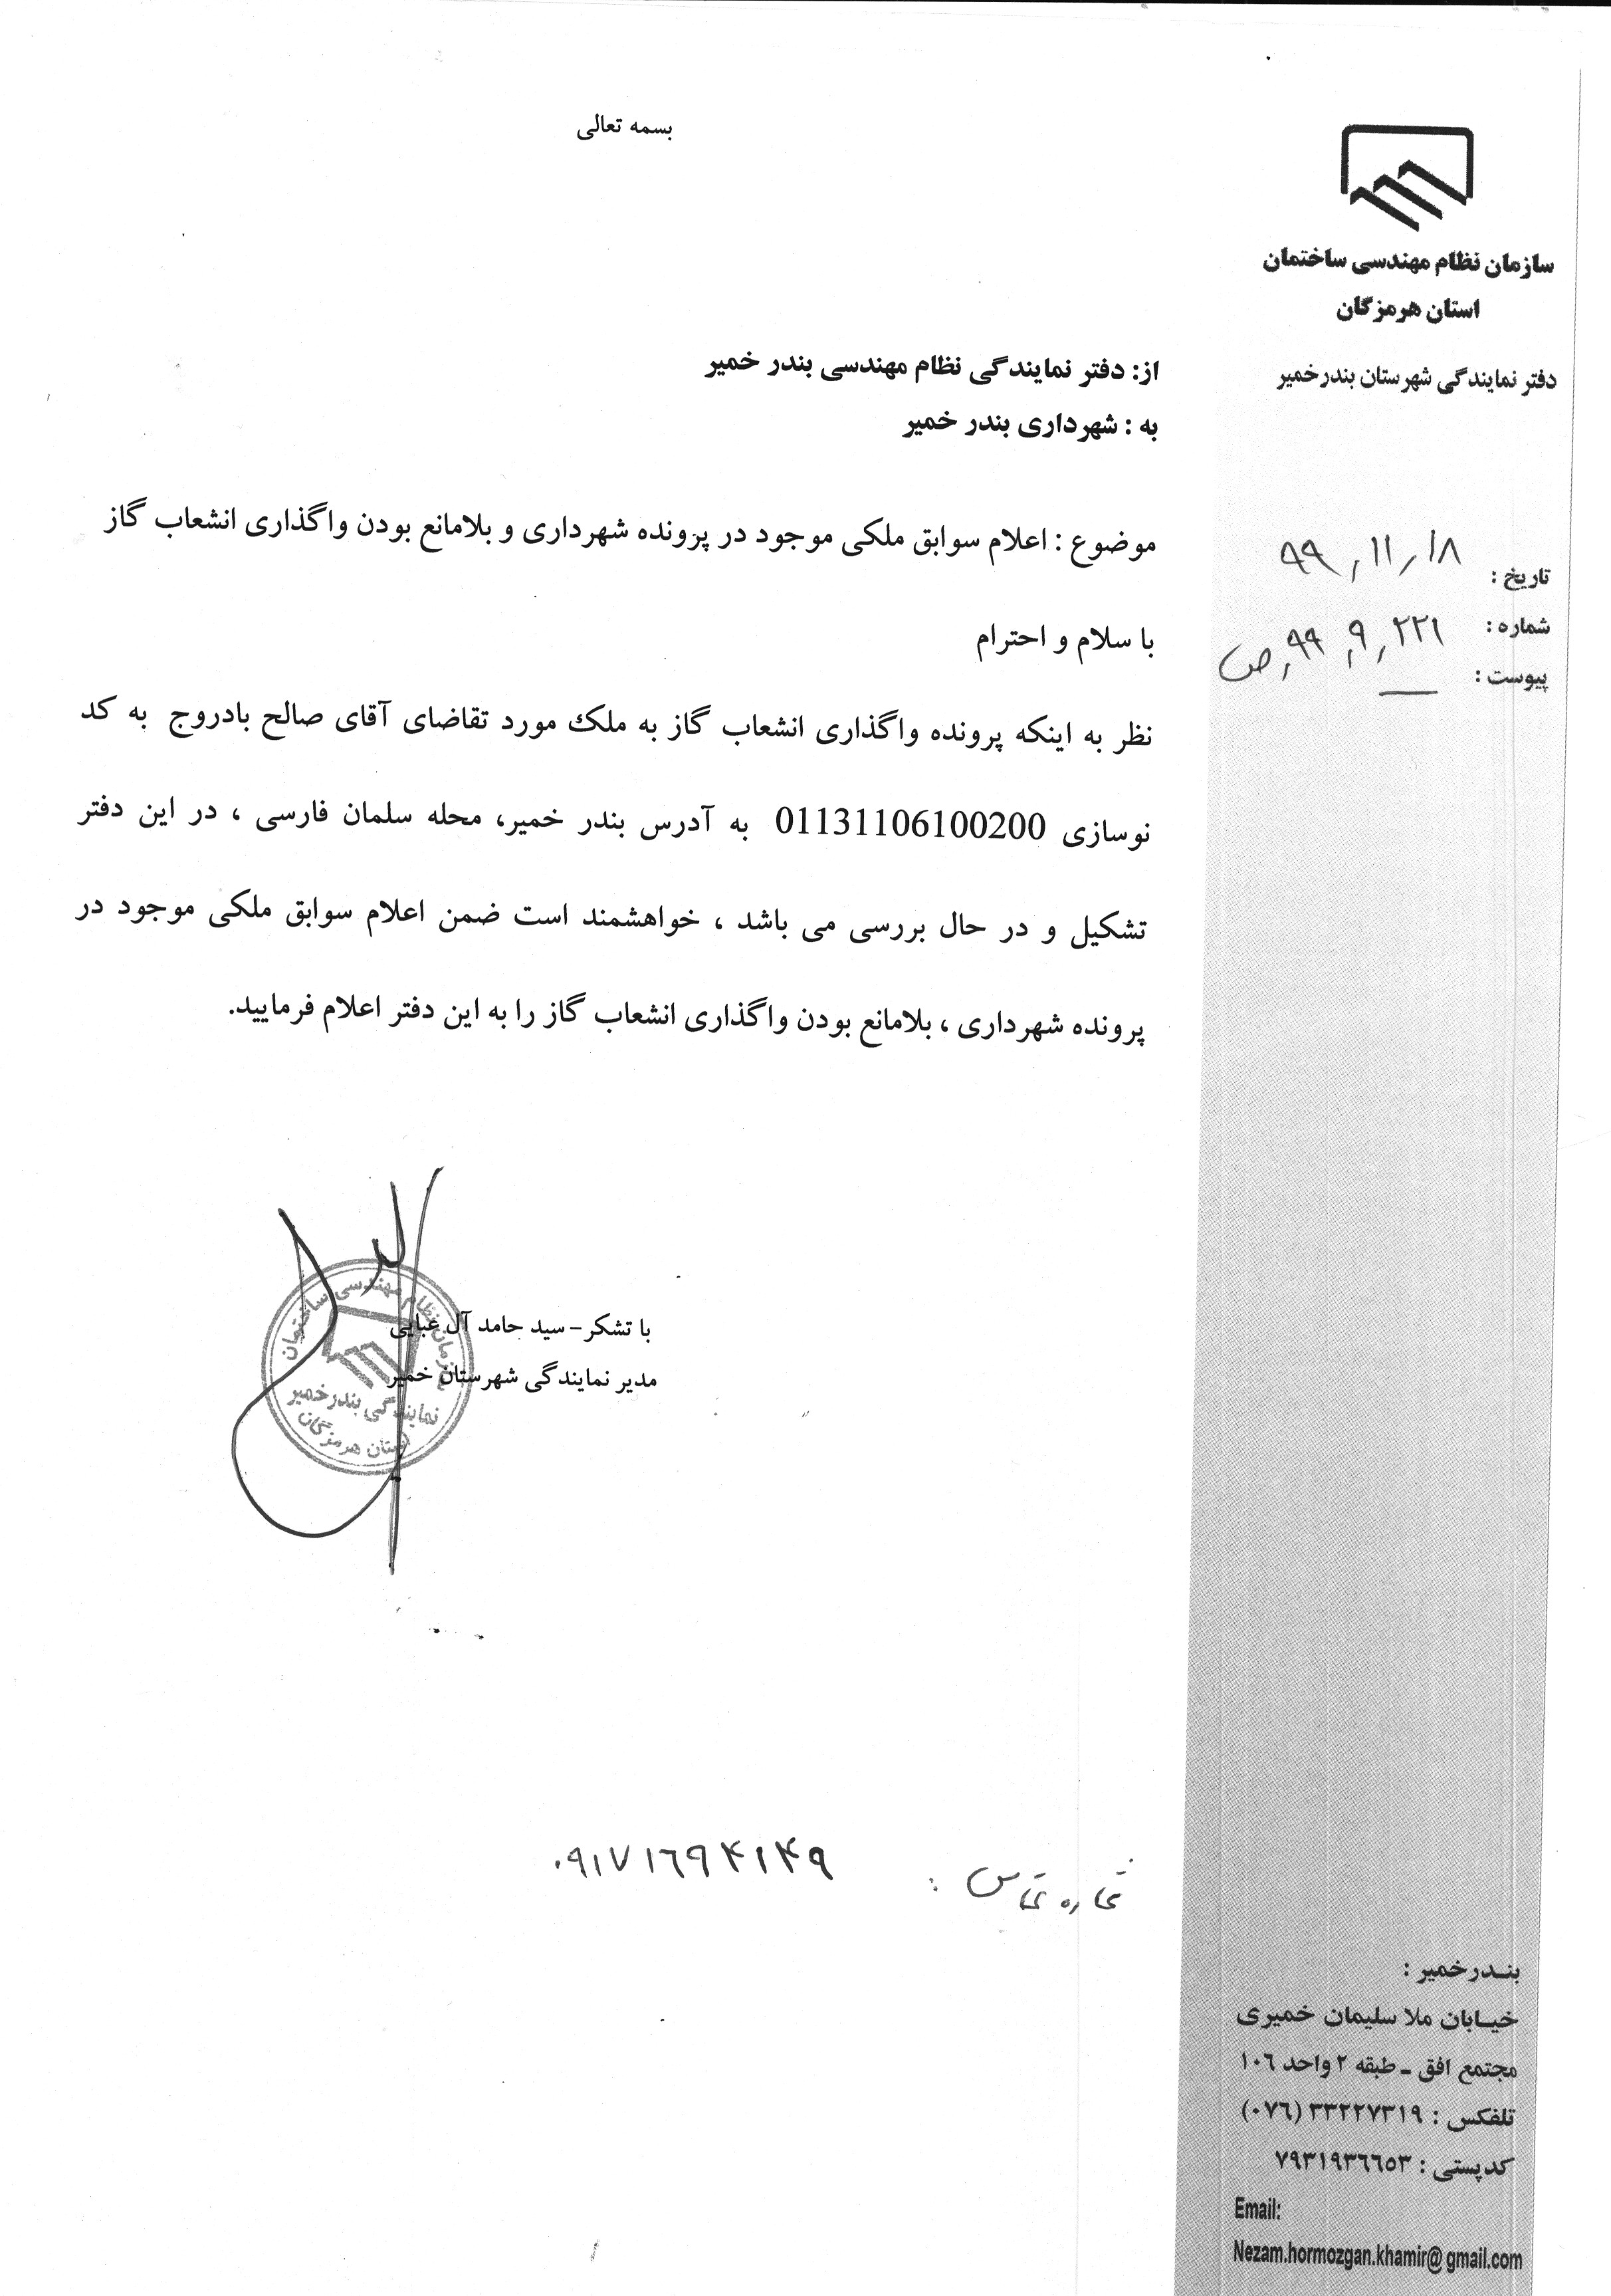 بسمه تعالی
سازمان نظام مهندسی ساختمان
استان هرمزگان
دفتر نمایندگی شهرستان بندرخمیر
تاریخ : ۹۹٫۱۱٫۱۸
شماره : ۲۲۱٫۹٫۹۹٫ص
پیوست : —
از: دفتر نمایندگی نظام مهندسی بندر خمیر
به : شهرداری بندر خمیر
موضوع : اعلام سوابق ملکی موجود در پرونده شهرداری و بلامانع بودن واگذاری انشعاب گاز
با سلام و احترام
نظر به اینکه پرونده واگذاری انشعاب گاز به ملک مورد تقاضای آقای صالح بادروج به کد
نوسازی 01131106100200 به آدرس بندر خمیر، محله سلمان فارسی ، در این دفتر
تشکیل و در حال بررسی می باشد ، خواهشمند است ضمن اعلام سوابق ملکی موجود در
پرونده شهرداری ، بلامانع بودن واگذاری انشعاب گاز را به این دفتر اعلام فرمایید.
با تشکر – سید حامد آل عبایی
مدیر نمایندگی شهرستان خمیر
سازمان نظام مهندسی ساختمان
نمایندگی بندرخمیر
استان هرمزگان
شماره تماس : ۰۹۱۷۱۶۹۴۱۴۹
بندرخمیر :
خیابان ملا سلیمان خمیری
مجتمع افق - طبقه ۲ واحد ۱۰۶
تلفکس : ۳۳۲۲۷۳۱۹ (۰۷۶)
کدپستی : ۷۹۳۱۹۳۶۶۵۳
Email:
Nezam.hormozgan.khamir@gmail.com